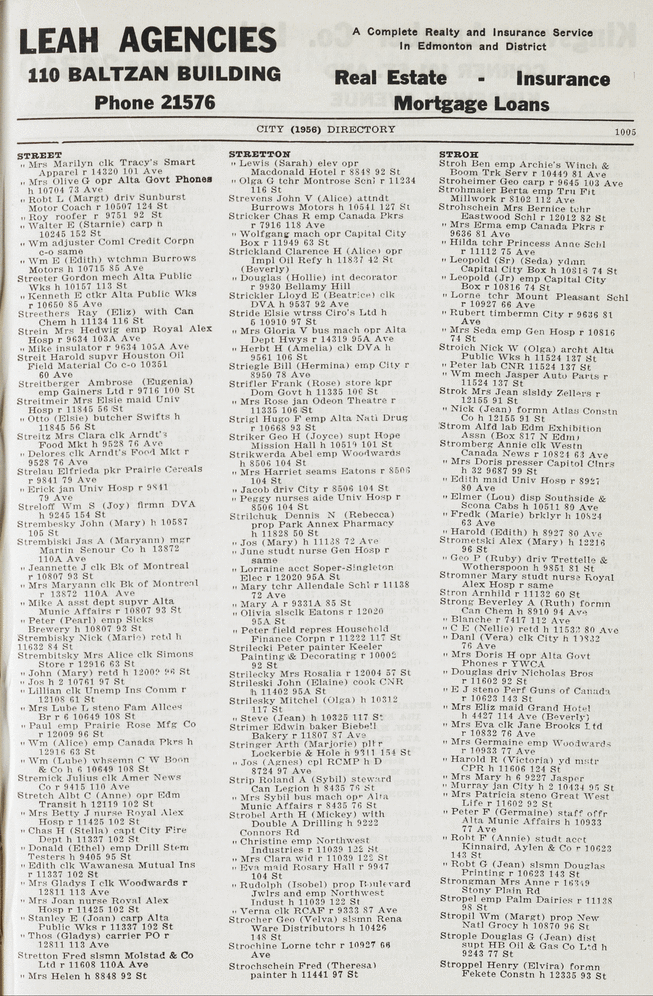 LEAH AGENCIES
110 BALTZAN BUILDING
Phone 21576
A Complete Realty and Insurance Service
In Edmonton and District
Real Estate - Insurance
Mortgage Loans
CITY (1956) DIRECTORY 1005
STREET
" Mrs Marilyn clk Tracy's Smart
Apparel r 14320 101 Ave
" Mrs Olive G opr Alta Govt Phones
h 10704 73 Ave
" Robt L (Margt) driv Sunburst
Motor Coach r 10507 124 St
" Roy roofer r 9751 92 St
" Walter E (Starnie) carp h
10245 152 St
" Wm adjuster Coml Credit Corpn
c-o same
" Wm E (Edith) wtchmn Burrows
Motors h 10715 85 Ave
Streeter Gordon mech Alta Public
Wks h 10157 113 St
" Kenneth E ctkr Alta Public Wks
r 10650 85 Ave
Streethers Ray (Eliz) with Can
Chem h 11134 116 St
Strein Mrs Hedwig emp Royal Alex
Hosp r 9634 103A Ave
" Mike insulator r 9634 105A Ave
Streit Harold supvr Houston Oil
Field Material Co c-o 10351
60 Ave
Streitberger Ambrose (Eugenia)
emp Gainers Ltd r 9716 100 St
Streitmeir Mrs Elsie maid Univ
Hosp r 11845 56 St
" Otto (Elsie) butcher Swifts h
11845 56 St
Streitz Mrs Clara clk Arndt's
Food Mkt h 9528 76 Ave
" Delores clk Arndt's Food Mkt r
9528 76 Ave
Strelau Elfrieda pkr Prairie Cereals
r 9841 79 Ave
" Erick jan Univ Hosp r 9841
79 Ave
Streloff Wm S (Joy) firmn DVA
h 9245 154 St
Strembesky John (Mary) h 10587
105 St
Strembiski Jas A (Maryann) mgr
Martin Senour Co h 13872
110A Ave
" Jeannette J clk Bk of Montreal
r 10807 93 St
" Mrs Maryann clk Bk of Montreal
r 13872 110A Ave
" Mike A asst dept supvr Alta
Munic Affairs r 10807 93 St
" Peter (Pearl) emp Sicks
Brewery h 10807 93 St
Strembisky Nick (Marie) retd h
11632 84 St
Strembitsky Mrs Alice clk Simons
Store r 12916 63 St
" John (Mary) retd h 12009 96 St
" Jos h 2 10761 97 St
" Lillian clk Unemp Ins Comm r
12108 61 St
" Mrs Lube L steno Fam Allces
Br r 6 10649 108 St
" Paul emp Prairie Rose Mfg Co
r 12009 96 St
" Wm (Alice) emp Canada Pkrs h
12916 63 St
" Wm (Lube) whsemn C W Boon
& Co h 6 10649 108 St
Stremick Julius clk Amer News
Co r 9415 110 Ave
Stretch Albt C (Anne) opr Edm
Transit h 12119 102 St
" Mrs Betty J nurse Royal Alex
Hosp r 11425 102 St
" Chas H (Stella) capt City Fire
Dept h 11337 102 St
" Donald (Ethel) emp Drill Stem
Testers h 9405 95 St
" Edith clk Wawanesa Mutual Ins
r 11337 102 St
" Mrs Gladys I clk Woodwards r
12811 113 Ave
" Mrs Joan nurse Royal Alex
Hosp r 11425 102 St
" Stanley E (Joan) carp Alta
Public Wks r 11337 102 St
" Thos (Gladys) carrier PO r
12811 113 Ave
Stretton Fred slsmn Molstad & Co
Ltd r 11608 110A Ave
" Mrs Helen h 8848 92 St
STRETTON
" Lewis (Sarah) elev opr
Macdonald Hotel r 8848 92 St
" Olga G tchr Montrose Schl r 11234
116 St
Strevens John V (Alice) attndt
Burrows Motors h 10541 127 St
Stricker Chas R emp Canada Pkrs
r 7916 118 Ave
" Wolfgang mach opr Capital City
Box r 11949 63 St
Strickland Clarence H (Alice) opr
Impl Oil Refy h 11837 42 St
(Beverly)
" Douglas (Hollie) int decorator
r 9930 Bellamy Hill
Strickler Lloyd E (Beatrice) clk
DVA h 9537 92 Ave
Stride Elsie wtrss Ciro's Ltd h
6 10910 97 St
" Mrs Gloria V bus mach opr Alta
Dept Hwys r 14319 95A Ave
" Herbt H (Amelia) clk DVA h
9561 106 St
Striegle Bill (Hermina) emp City r
8950 78 Ave
Strifler Frank (Rose) store kpr
Dom Govt h 11335 106 St
" Mrs Rose jan Odeon Theatre r
11335 106 St
Strigl Hugo F emp Alta Natl Drug
r 10668 93 St
Striker Geo H (Joyce) supt Hope
Mission Hall h 10519 101 St
Strikwerda Abel emp Woodwards
h 8506 104 St
" Mrs Harriet seams Eatons r 8506
104 St
" Jacob driv City r 8506 104 St
" Peggy nurses aide Univ Hosp r
8506 104 St
Strilchuk Dennis N (Rebecca)
prop Park Annex Pharmacy
h 11828 50 St
" Jos (Mary) h 11138 72 Ave
" June studt nurse Gen Hosp r
same
" Lorraine acct Soper-Singleton
Elec r 12020 95A St
" Mary tchr Allendale Schl r 11138
72 Ave
" Mary A r 9331A 85 St
" Olivia slsclk Eatons r 12020
95A St
" Peter field repres Household
Finance Corpn r 11222 117 St
Strilecki Peter painter Keeler
Painting & Decorating r 10002
92 St
Strilecky Mrs Rosalia r 12004 57 St
Strileski John (Elaine) cook CNR
h 11402 95A St
Strilesky Mitchel (Olga) h 10312
117 St
" Steve (Jean) h 10325 117 St
Strimer Edwin baker Biebell
Bakery r 11807 87 Ave
Stringer Arth (Marjorie) pltr
Lockerbie & Hole h 9311 154 St
" Jos (Agnes) cpl RCMP h D
8724 97 Ave
Strip Roland A (Sybil) steward
Can Legion h 8435 76 St
" Mrs Sybil bus mach opr Alta
Munic Affairs r 8435 76 St
Strobel Arth H (Mickey) with
Double A Drilling h 9222
Connors Rd
" Christine emp Northwest
Industries r 11039 122 St
" Mrs Clara wid r 11039 122 St
" Eva maid Rosary Hall r 9947
104 St
" Rudolph (Isobel) prop Boulevard
Jwlrs and emp Northwest
Indust h 11039 122 St
" Verna clk RCAF r 9333 87 Ave
Strocher Geo (Velva) slsmn Rena
Ware Distributors h 10426
148 St
Strochine Lorne tchr r 10927 66
Ave
Strochschein Fred (Theresa)
painter h 11441 97 St
STROH
Stroh Ben emp Archie's Winch &
Room Trk Serv r 10449 81 Ave
Stroheimer Geo carp r 9645 103 Ave
Strohmaier Berta emp Tru Fit
Millwork r 8102 112 Ave
Strohschein Mrs Bernice tchr
Eastwood Schl r 12012 82 St
" Mrs Erma emp Canada Pkrs r
9636 81 Ave
" Hilda tchr Princess Anne Schl
r 11112 75 Ave
" Leopold (Sr) (Seda) ydmn
Capital City Box h 10816 74 St
" Leopold (Jr) emp Capital City
Box r 10816 74 St
" Lorne tchr Mount Pleasant Schl
r 10927 66 Ave
" Rubert timbermn City r 9636 81
Ave
" Mrs Seda emp Gen Hosp r 10816
74 St
Stroich Nick W (Olga) archt Alta
Public Wks h 11524 137 St
" Peter lab CNR 11524 137 St
" Wm mech Jasper Auto Parts r
11524 137 St
Strok Mrs Jean slsldy Zellers r
12155 91 St
" Nick (Jean) formn Atlas Constn
Co h 12155 91 St
Strom Alfd lab Edm Exhibition
Assn (Box 817 N Edm)
Stromberg Annie clk Westn
Canada News r 10824 63 Ave
" Mrs Doris presser Capitol Clnrs
h 32 9687 99 St
" Edith maid Univ Hosp r 8927
80 Ave
" Elmer (Lou) disp Southside &
Scona Cabs h 10511 80 Ave
" Fredk (Marie) brklyr h 10824
63 Ave
" Harold (Edith) h 8927 80 Ave
Strometski Alex (Mary) h 12216
96 St
" Geo P (Ruby) driv Trettelle &
Wotherspoon h 9851 81 St
Stromner Mary studt nurse Royal
Alex Hosp r same
Stron Arnhild r 11132 60 St
Strong Beverley A (Ruth) formn
Can Chem h 8910 94 Ave
" Blanche r 7417 112 Ave
" C E (Nellie) retd h 11532 80 Ave
" Danl (Vera) clk City h 10832
76 Ave
" Mrs Doris H opr Alta Govt
Phones r YWCA
" Douglas driv Nicholas Bros
r 11602 92 St
" E J steno Perf Guns of Canada
r 10623 143 St
" Mrs Eliz maid Grand Hotel
h 4427 114 Ave (Beverly)
" Mrs Eva clk Jane Brooks Ltd
r 10832 76 Ave
" Mrs Germaine emp Woodwards
r 10933 77 Ave
" Harold R (Victoria) yd mstr
CPR h 11606 124 St
" Mrs Mary h 6 9227 Jasper
" Murray jan City h 2 10434 95 St
" Mrs Patricia steno Great West
Life r 11602 92 St
" Peter F (Germaine) staff offr
Alta Munic Affairs h 10933
77 Ave
" Robt F (Annie) studt acct
Kinnaird, Aylen & Co r 10623
143 St
" Robt G (Jean) slsmn Douglas
Printing r 10623 143 St
Strongman Mrs Anne r 16349
Stony Plain Rd
Stropel emp Palm Dairies r 11128
98 St
Stropil Wm (Margt) prop New
Natl Grocy h 10870 96 St
Strople Douglas G (Jean) dist
supt HB Oil & Gas Co Ltd h
9243 77 St
Stroppel Henry (Elvira) formn
Fekete Constn h 12335 93 St